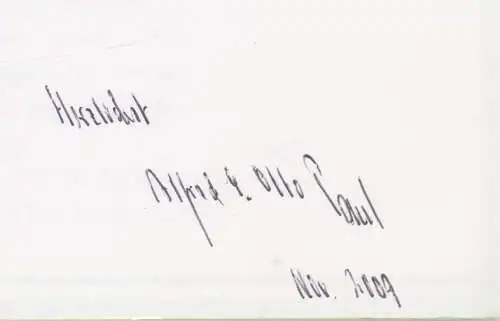 Herzlichst
Alfred E. Otto Paul
Nov. 2009